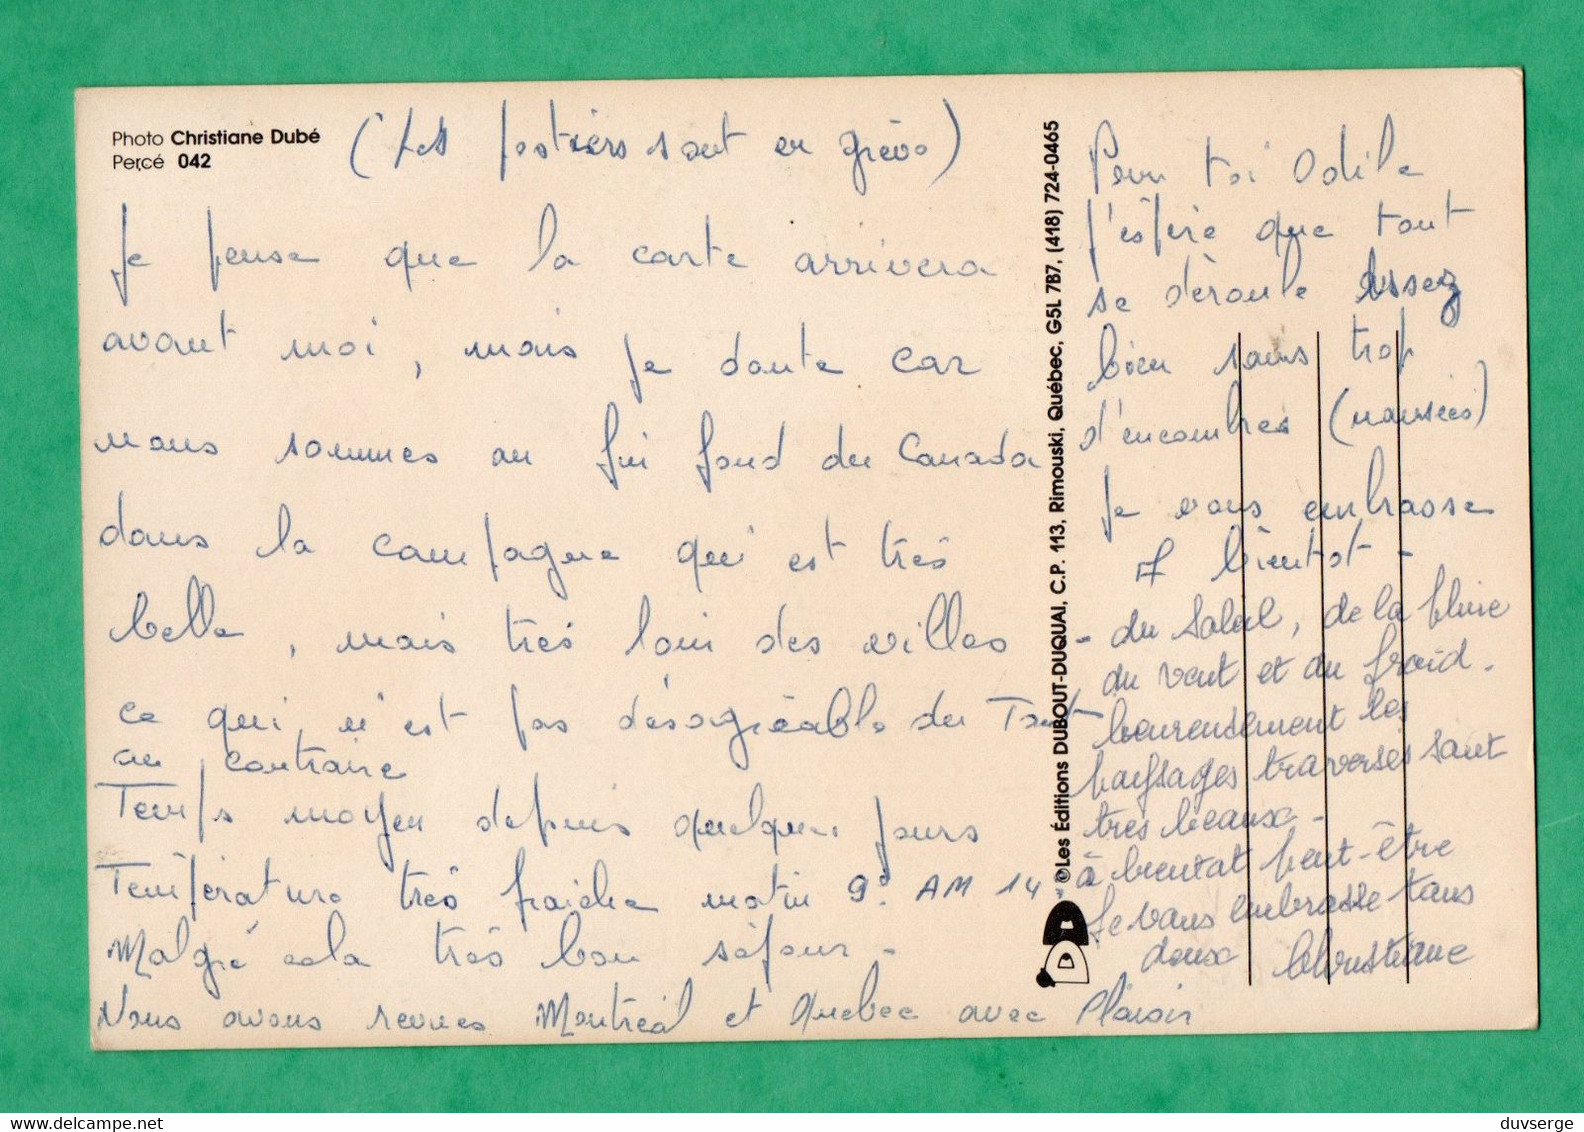 Photo Christiane Dubé
Percé 042
(Les postiers sont en grève)
Je pense que la carte arrivera
avant moi, mais je doute car
nous sommes au fin fond du Canada
dans la campagne qui est très
belle, mais très loin des villes
ce qui n'est pas désagréable du Tout
au contraire
Temps moyen depuis quelques jours
Température très fraiche matin 9° AM 14
Malgré cela très bon séjour -
Nous avons revues Montréal et Quebec avec Plaisir
©Les Éditions DUBOUT-DUQUAI, C.P. 113, Rimouski, Québec, G5L 7B7, (418) 724-0465
Pour toi Odile
j'éspère que tout
se déroule assez
bien sans trop
d'encombres (nausées)
Je vous embrasse
A bientot -
- du soleil, de la pluie
du vent et du froid.
heureusement les
paysages traversés sont
très beaux -
à bientot peut-être
Je vous embrasse tous
deux Christiane
Plus de cartes postales sur www.delcampe.net
duvserge